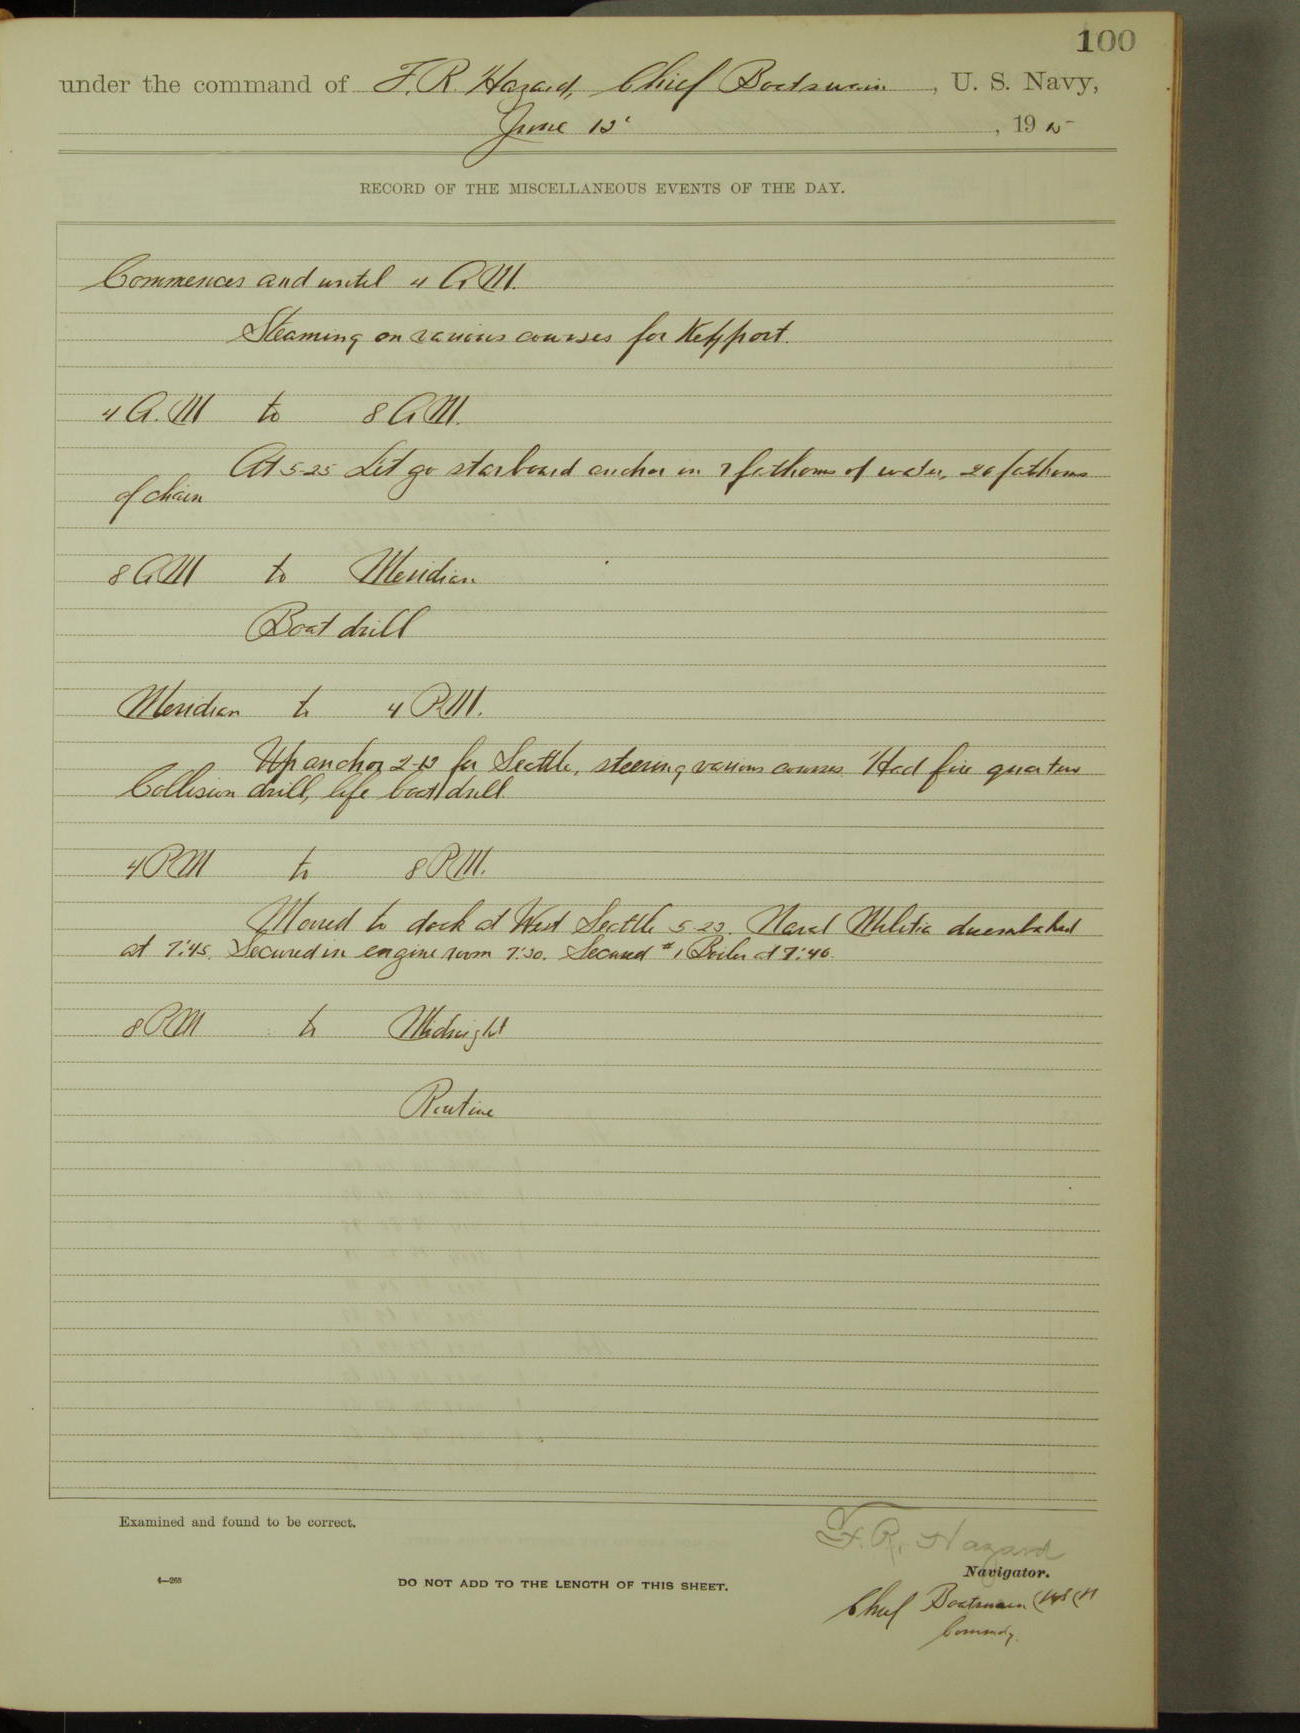 100
under the command of F. R. Hazard, Chief Boatswain, U. S. Navy,
June 12, 19
RECORD OF THE MISCELLANEOUS EVENTS OF THE DAY.
Commences and until 4 A.M.
Steaming on various courses for Keyport.
4 A.M to 8 A.M.
At 5-25 Let go starboard anchor in 7 fathoms of water, 20 fathoms
of chain
8 AM to Meridian
Boat drill
Meridian to 4 P.M.
Up anchor 2-12 for Seattle, steering various courses Had fire quarters
Collision drill, life boat drill
4 PM to 8 P.M.
Moved to dock at West Seattle 5-23. Naval Militia disembarked
at 7:45. Secured in engine room 7:30. Secured #1 Boiler at 7:40.
8 PM to Midnight
Routine
Examined and found to be correct.
F. R. Hazard
Navigator.
4—268
DO NOT ADD TO THE LENGTH OF THIS SHEET.
Chief Boatswain USN
Commdg.